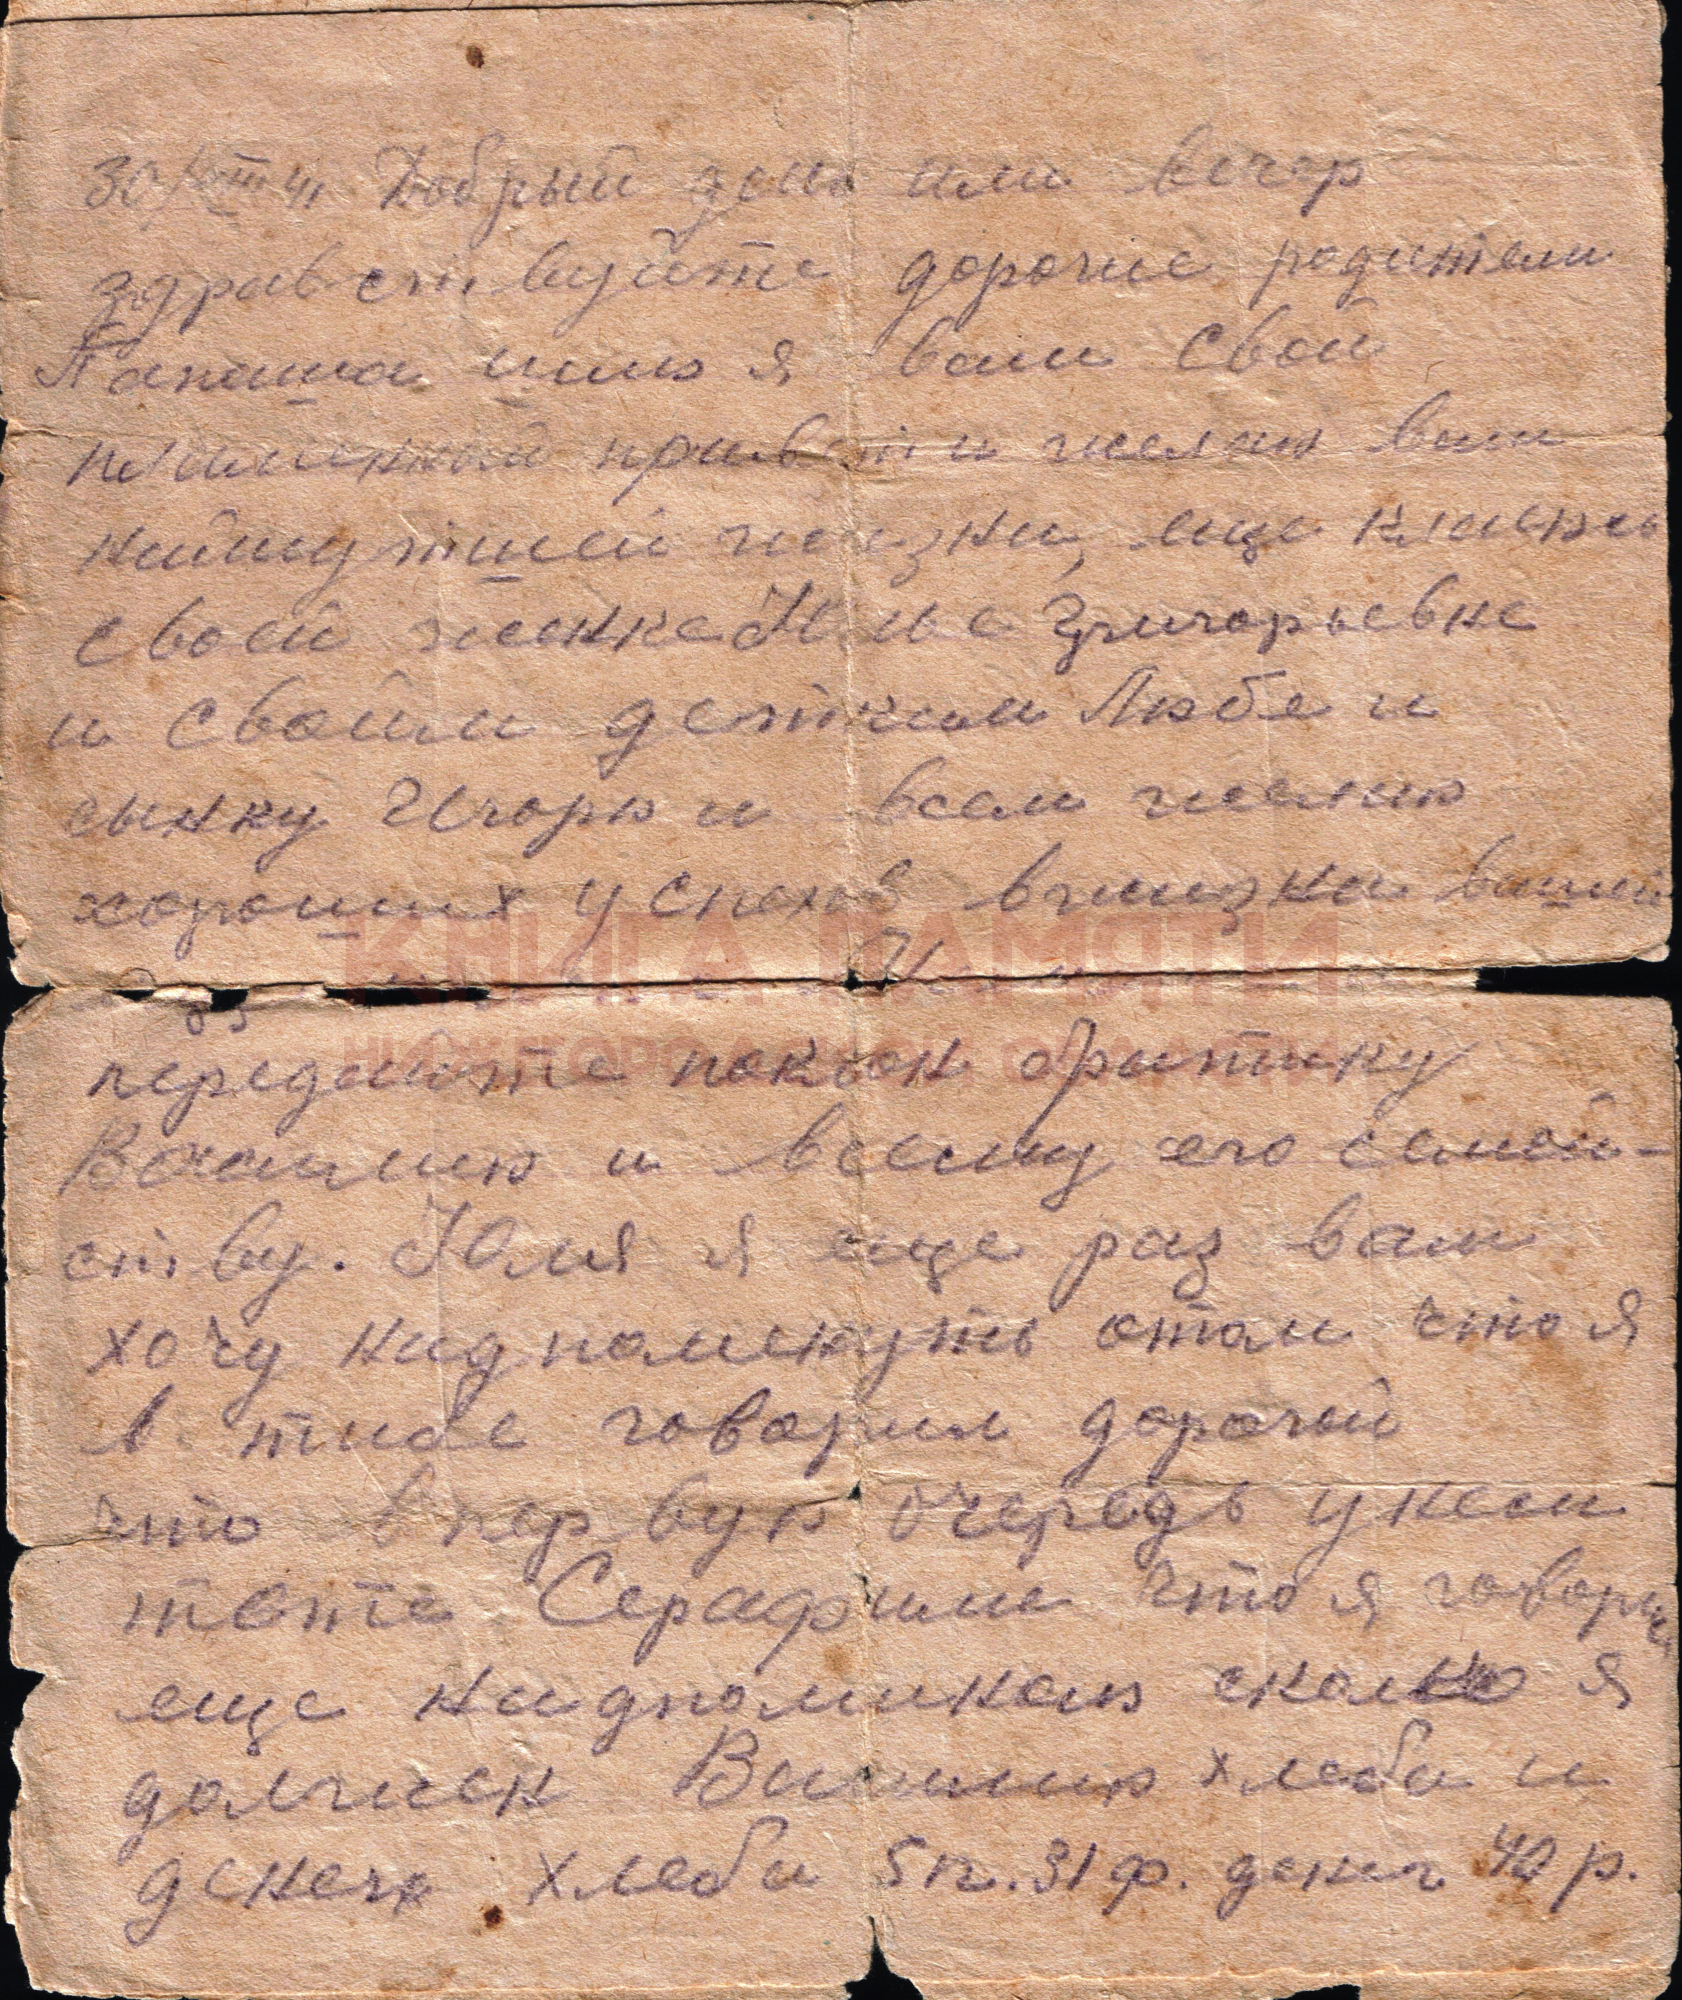 Добрый день или вечер
здравствуйте дорогие родители
Папаша шлю я вам свой
пламенный привет и желаю вам
найлутшей жизни, еще кланюсь
своей женке Юлье Григорьевне
и своим деткам Любе и
сынку Игорю и всем желаю
хороших успехов вжизни вашей
передайте поклон братику
Василию и всему его семей-
ству. Юля я еще раз вам
хочу надпоменуть отом что я
в тибе говорил дорогой
что впервую очередь
тете Серафиме что я говорил
еще надпоминаю сколько я
должен Василию хлеба и
денег хлеба 5 п. 31 ф. денег 40 р.
КНИГА ПАМЯТИ
НИЖЕГОРОДСКОЙ ОБЛАСТИ